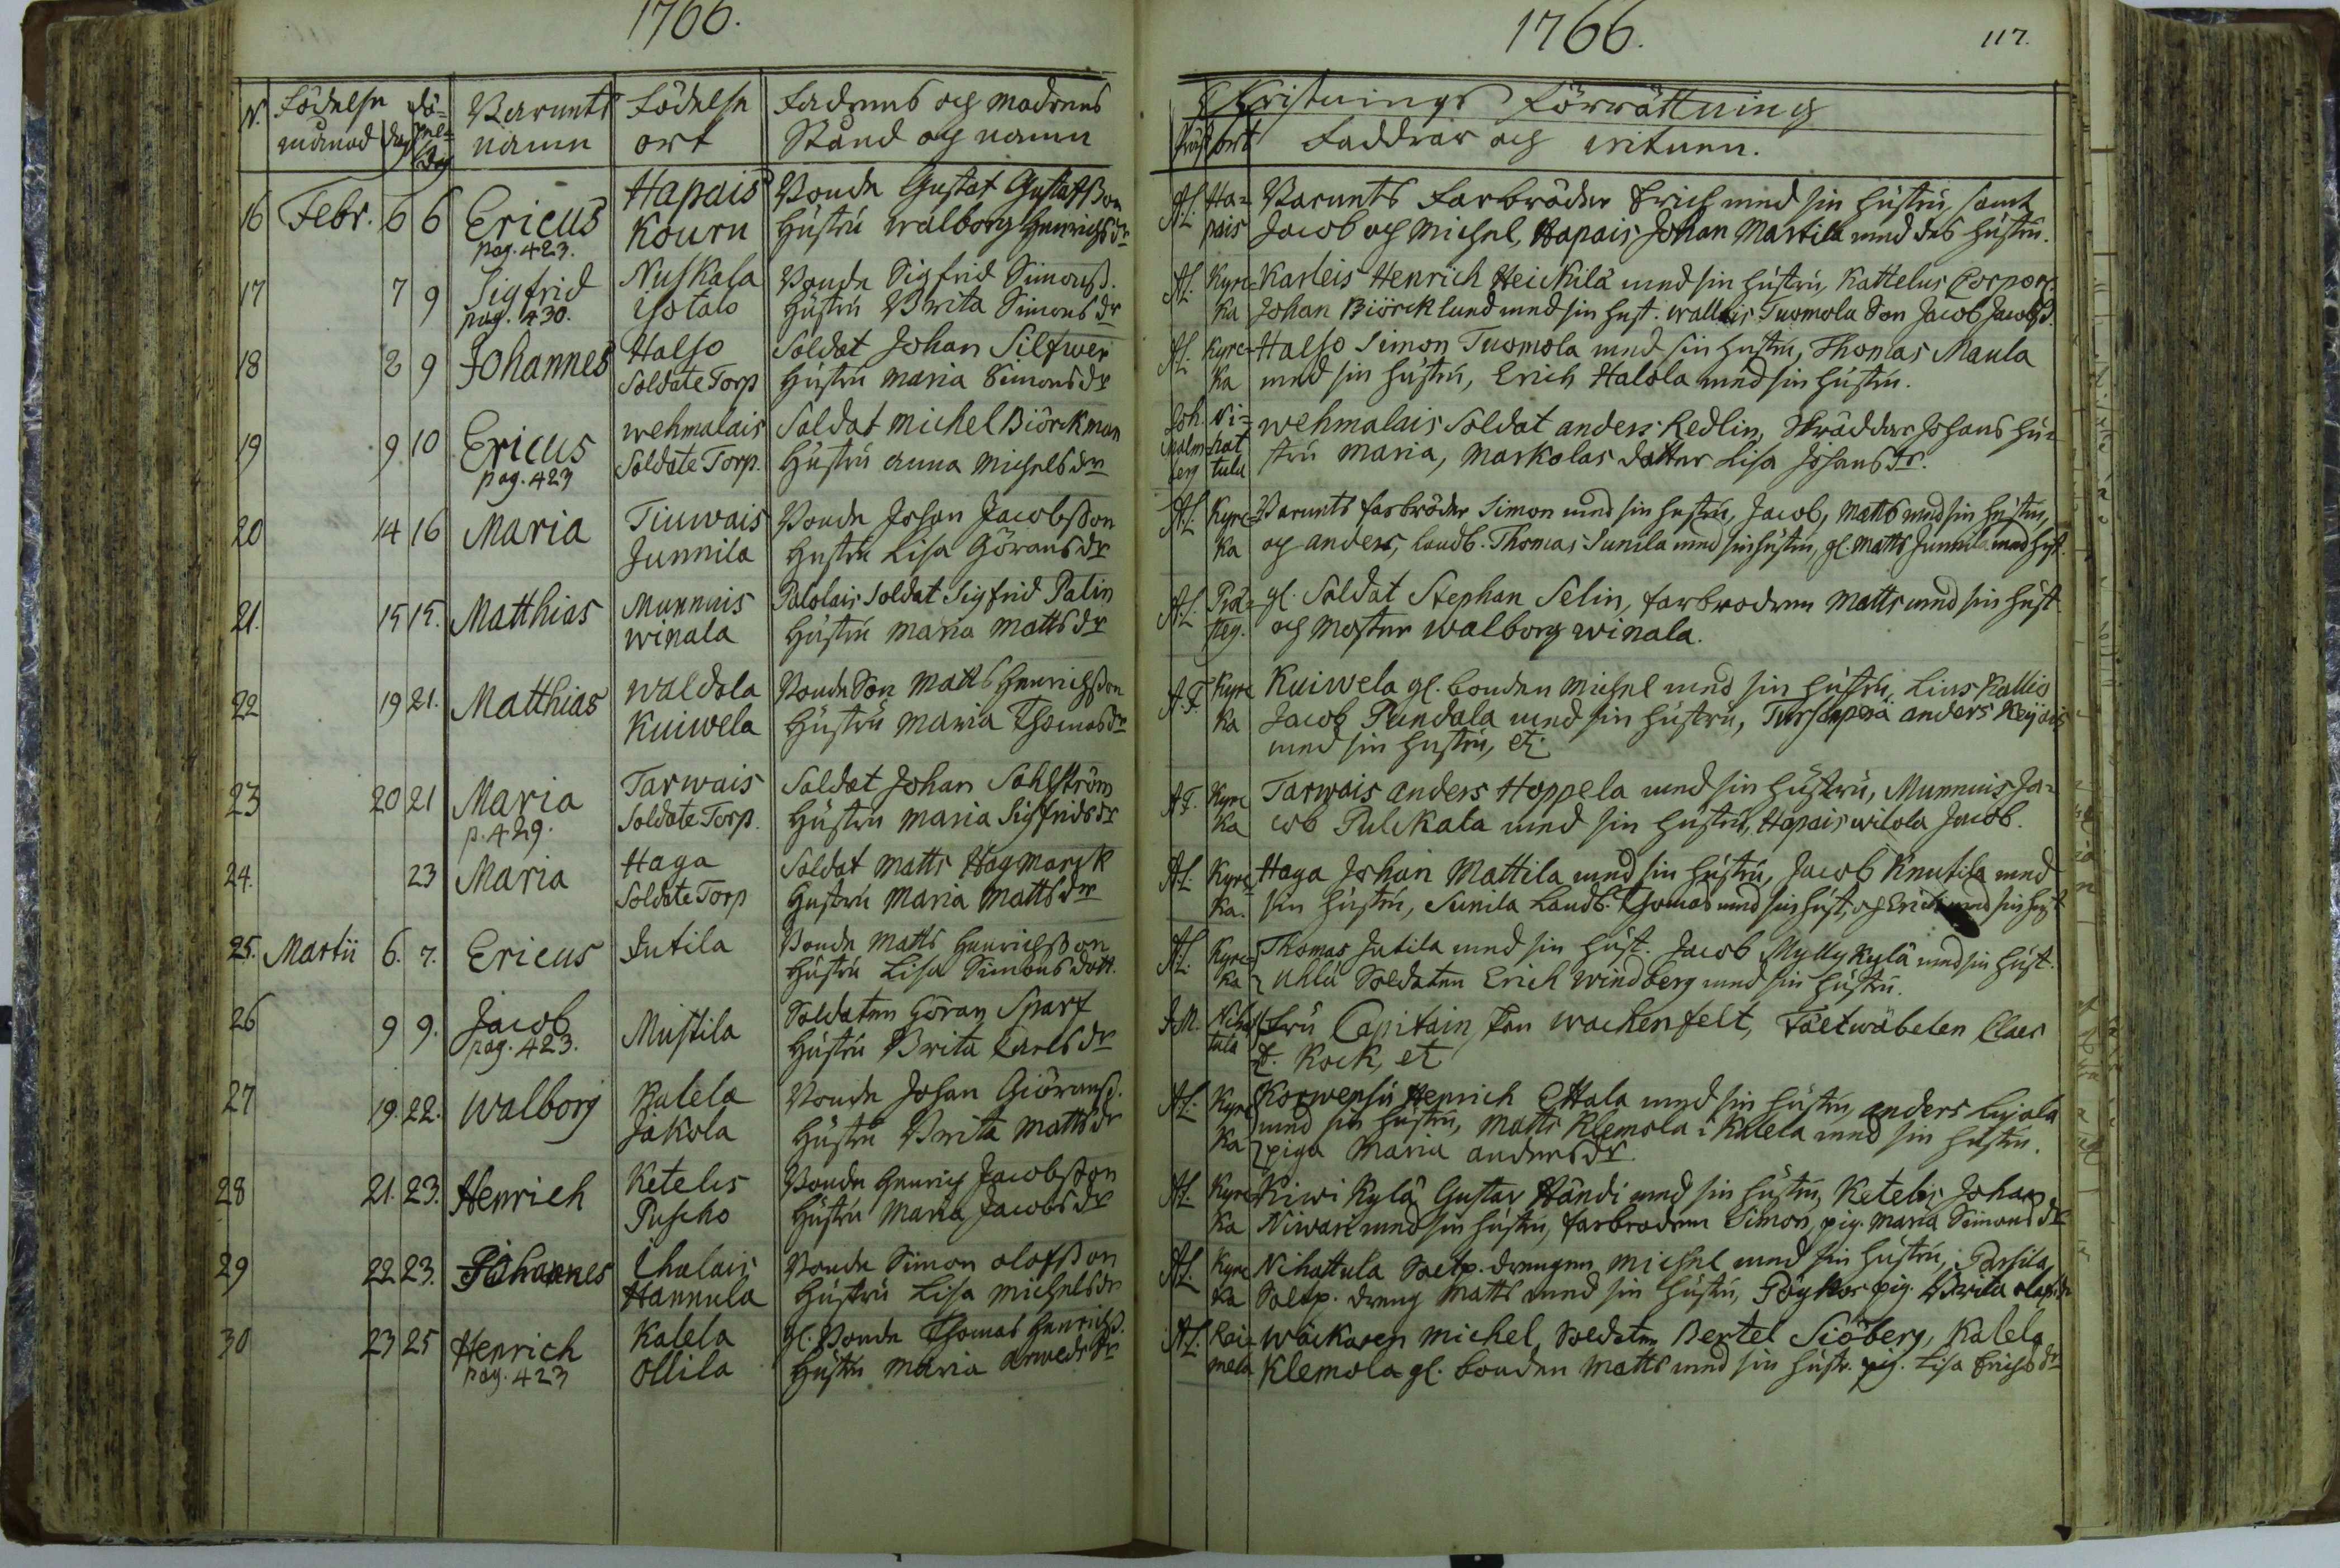 1766.
N. Födelse månad dag Döpelse dag Barnets namn Födelse ort Fadrens och modrens Stånd och namn
16 Febr. 6 6 Ericus Hapais Bonde Gustaf Gustafsson
pag. 423. Kouru Hustru Walborg Henrichsdr
17 7 9 Sigfrid Nuskala Bonde Sigfrid Simonss.
pag. 430. isotalo Hustru Brita Simonsdr
18 8 9 Johannes Halso Soldat Johan Silfwer
Soldate Torp Hustru Maria Simonsdr
19 9 10 Ericus wehmalais Soldat Michel Biörckman
pag. 423 Soldate Torp. Hustru Anna Michelsdr
20 14 16 Maria Tiuwais Bonde Johan Jacobsson
Junnila Hustru Lisa Göransdr
21. 15 15. Matthias Munnuis Palolais Soldat Sigfrid Palin
winala Hustru Maria Mattsdr
22 19 21. Matthias Waldola Bonde Son Matts Henrichsson
Kuiwela Hustru Maria Thomasdr
23 20 21 Maria Tarwais Soldat Johan Sahlström
p. 429. Soldate Torp. Hustru Maria Sigfridsdr
24. 23 Maria Haga Soldat Matts Hagmarck
Soldate Torp Hustru Maria Mattsdr
25. Martii 6. 7. Ericus Jutila Bonde Matts Henrichsson
Hustru Lisa Simons dott.
26 9 9. Jacob Mustila Soldaten Göran Sparf
pag. 423. Hustru Brita Carlsdr
27 19. 22. Walborg Kalela Bonde Johan Giöranss.
Jakola Hustru Brita Mattsdr
28 21. 23. Henrich Ketelis Bonde Henrich Jacobsson
Puscho Hustru Maria Jacobsdr
29 22 23. Johannes ihalais Bonde Simon Olofsson
Hannula Hustru Lisa Michelsdr
30 23 25 Henrich Kalela gl. Bonde Thomas Henrichss.
pag. 423 Ollila Hustru Maria Arwedsdr
1766. 117.
Christnings Förrättning
Präst ort Faddrar och witnen.
A.L. Ha=pais Barnets Farbröder Erich med sin hustru, samt
Jacob och Michel, Hapais Johan Martila med des hustru.
A.L. Kyrc=ka Karleis Henrich Heickilä med sin hustru, Kattelus Corpor.
Johan Biörcklund med sin hust. wallais Tuomola Son Jacob Jacobss.
A.L. Kyrc=ka Halso Simon Tuomola med sin hustru, Thomas Maula
med sin hustru, Erich Halola med sin hustru.
Joh. Malmberg Ni=hattula wehmalais Soldat Anders Redlin, Skräddar Johans hu=
stru Maria, Markolas dotter Lisa Johansdr.
A.L. Kyrc=ka Barnets farbröder Simon med sin hustru, Jacob, Matts med sin hustru,
och Anders, landb. Thomas Sunila med sin hustru, gl. Matts Junnila med hust.
A.L. Prä=steg. gl. Soldat Stephan Selin, farbrodren Matts med sin hust.
och Moster Walborg winala.
A.F. Kyrc ka Kuiwela gl. bonden Michel med sin hustru, Lius Kallio
Jacob Pundala med sin hustru, Tursunperä Anders Keijois
med sin hustru, etc
A.F. Kyrc ka Tarwais Anders Hoppela med sin hustru, Munnuis Ja=
cob Pulckala med sin hustru, Hapais wilola Jacob.
A.L. Kyrc=ka. Haga Johan Mattila med sin hustru, Jacob Knutila med
sin hustru, Sunila Landb. Thomas med sin hust, och Erich med sin hust
A.L. Kyrc=ka Thomas Jutila med sin hust. Jacob Myllykylä med sin hust.
Uhlu Soldaten Erich Windberg med sin hustru.
J.M. Nihattula Fru Capitain Fru Wachenfelt, Fältwäbelen Claes
F. Kock, et
A.L. Kyrc ka Korwensu Henrich Ettala med sin hustru, Anders Lujala
med sin hustru, Matts Klemola i Kalela med sin hustru.
piga Maria Andersdr.
A.L. Kyrc ka Kiwi Kylä Gustav Händi med sin hustru, Ketelis Johan
Niwari med sin hustru, farbrodren Simon, pig. Maria Simonsdr
A.L. Kyrc ka Nihattula Soltp. drengen Michel med sin hustru, Parsila
Soltp. dreng Matts med sin hustru, Pöykos pig. Brita Olofsdr
A.L. Rai=mela Wäckaren Michel, Soldaten Bertel Siöberg, Kalela
Klemola gl. bonden Matts med sin hustr. pig. Lisa Erichsdr